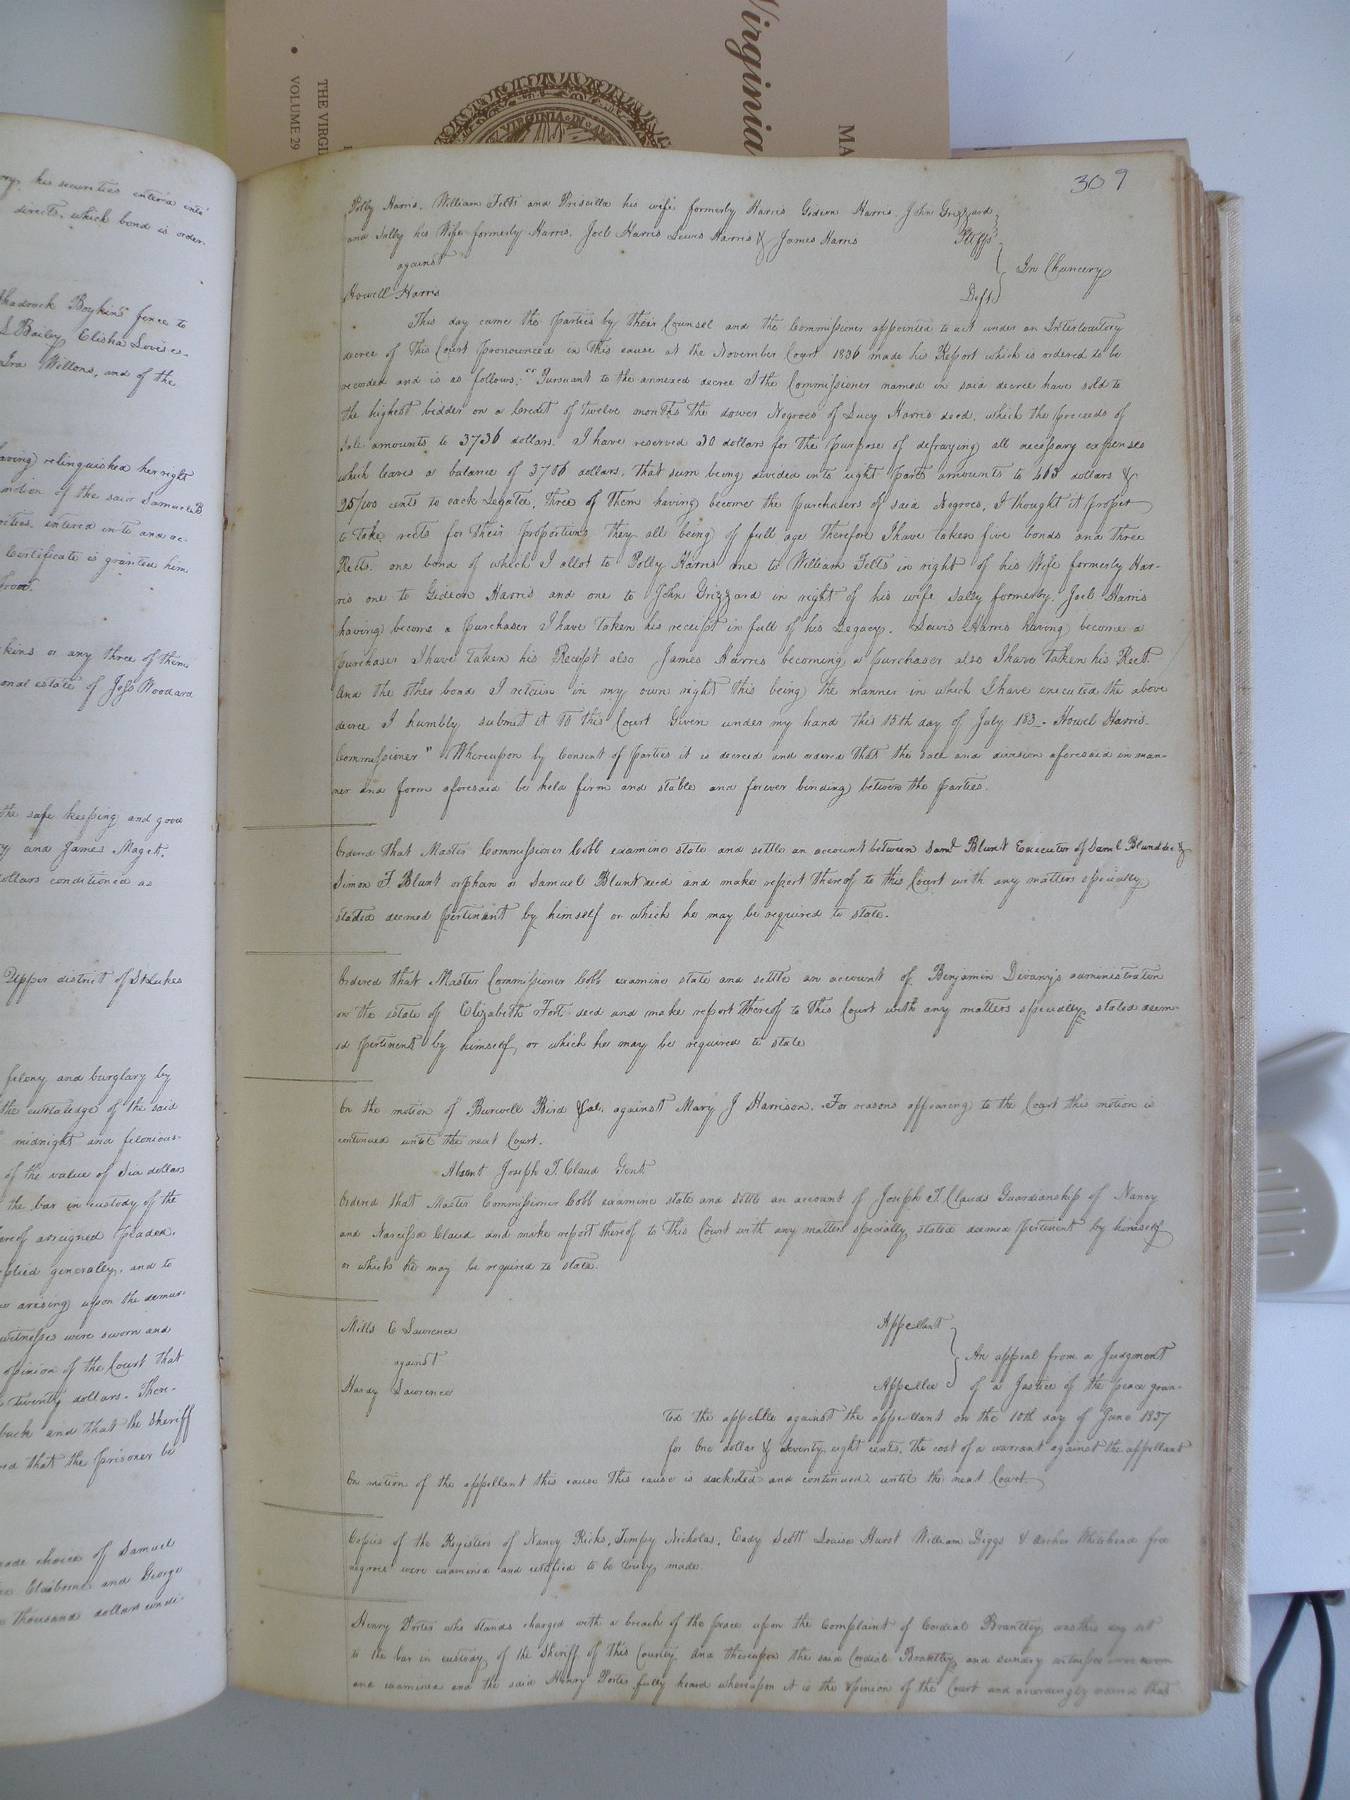 Virginia
MA
THE VIRGI
VOLUME 29
VIRGINIA
ory, his securities entered into
directs, which bond is order-
Shadrock Boykins fence to
L Bailey, Elisha Lovis es-
Ira Wellons, and of the
aving relinquished her right
motion of the said Samuel B
rities, entered into and ac-
Certificate is granted him
Proof.
kins or any three of them
onal estate of Joss Woodard
the safe keeping and good
y and James Maget,
dollars conditioned as
Upper district of St Lukes
felony and burglary by
the curtaledge of the said
midnight and felonious-
of the value of six dollars
the bar in custody of the
ereof arraigned pleaded,
plied generally, and to
w arising upon the demur-
witnesses were sworn and
opinion of the Court that
twenty dollars. There-
back and that the Sheriff
red that the prisoner be
made choice of Samuel
Claiborne and George
thousand dollars condi-
309
Polly Harris, William Felts and Priscilla his wife formerly Harris Gideon Harris, John Grizzard
and Sally his Wife formerly Harris, Joel Harris Lewis Harris & James Harris Pltffs
against In Chancery
Howell Harris Deft.
This day came the Parties by their Counsel and the Commissioner appointed to act under an Interlocutory
decree of this Court pronounced in this cause at the November Court 1836 made his Report which is ordered to be
recorded and is as follows; "Pursuant to the annexed decree I the Commissioner named in said decree have sold to
the highest bidder on a credit of twelve months the dower Negroes of Lucy Harris decd. which the proceeds of
sale amounts to 3736 dollars. I have reserved 30 dollars for the purpose of defraying all necessary expenses
which leaves a balance of 3706 dollars, that sum being divided into eight parts amounts to 463 dollars &
25/100 cents to each Legatee, three of them having become the purchasers of said Negroes, I thought it proper
to take rects for their proportions they all being of full age therefore I have taken five bonds and three
Rects. one bond of which I allot to Polly Harris one to William Felts in right of his Wife formerly Har-
ris one to Gideon Harris and one to John Grizzard in right of his wife Sally formerly. Joel Harris
having become a purchaser I have taken his receipt in full of his Legacy. Lewis Harris having become a
purchaser I have taken his Receipt also James Harris becoming a purchaser also I have taken his Rect.
And the other bond I retain in my own right this being the manner in which I have executed the above
decree I humbly submit it to this Court Given under my hand this 15th day of July 183_ Howel Harris
Commissioner" Whereupon by Consent of parties it is decreed and ordered that the sale and division aforesaid in man-
ner and form aforesaid be held firm and stable and forever binding between the parties.
Ordered that Master Commissioner Cobb examine state and settle an account between Saml Blunt Executor of Saml Blunt dec &
Simon T Blunt orphan of Samuel Blunt decd and make report thereof to this Court with any matters specially
stated deemed pertinent by himself or which he may be required to state.
Ordered that Master Commissioner Cobb examine state and settle an account of Benjamin Devany's administration
on the estate of Elizabeth Fort decd and make report thereof to this Court with any matters specially stated deem-
ed pertinent by himself, or which he may be required to state
On the motion of Burwell Bird &al. against Mary J Harrison. For reasons appearing to the Court this motion is
continued until the next Court.
Absent Joseph T. Claud Gent.
Ordered that Master Commissioner Cobb examine state and settle an account of Joseph T. Clauds Guardianship of Nancy
and Narcissa Claud and make report thereof to this Court with any matters specially stated deemed pertinent by himself
or which he may be required to state.
Mills C Lawrence Appellant
against An appeal from a Judgment
Hardy Lawrence Appellee of a Justice of the peace gran-
ted the appellee against the appellant on the 10th day of June 1837
for One dollar & seventy eight cents, the cost of a warrant against the appellant
On motion of the appellant this cause this cause is docketed and continued until the next Court.
Copies of the Registers of Nancy Ricks, Tempy Nicholas, Eady Scott Louisa Hurst William Diggs & Archer Whitehead free
negroes were examined and certified to be truly made.
Henry Porter who stands charged with a breach of the peace upon the Complaint of Cordial Brantley, was this day set
to the bar in custody of the Sheriff of this County. And thereupon the said Cordial Brantley and sundry witnesses were sworn
and examined and the said Henry Porter fully heard whereupon it is the opinion of the Court and accordingly ordered that